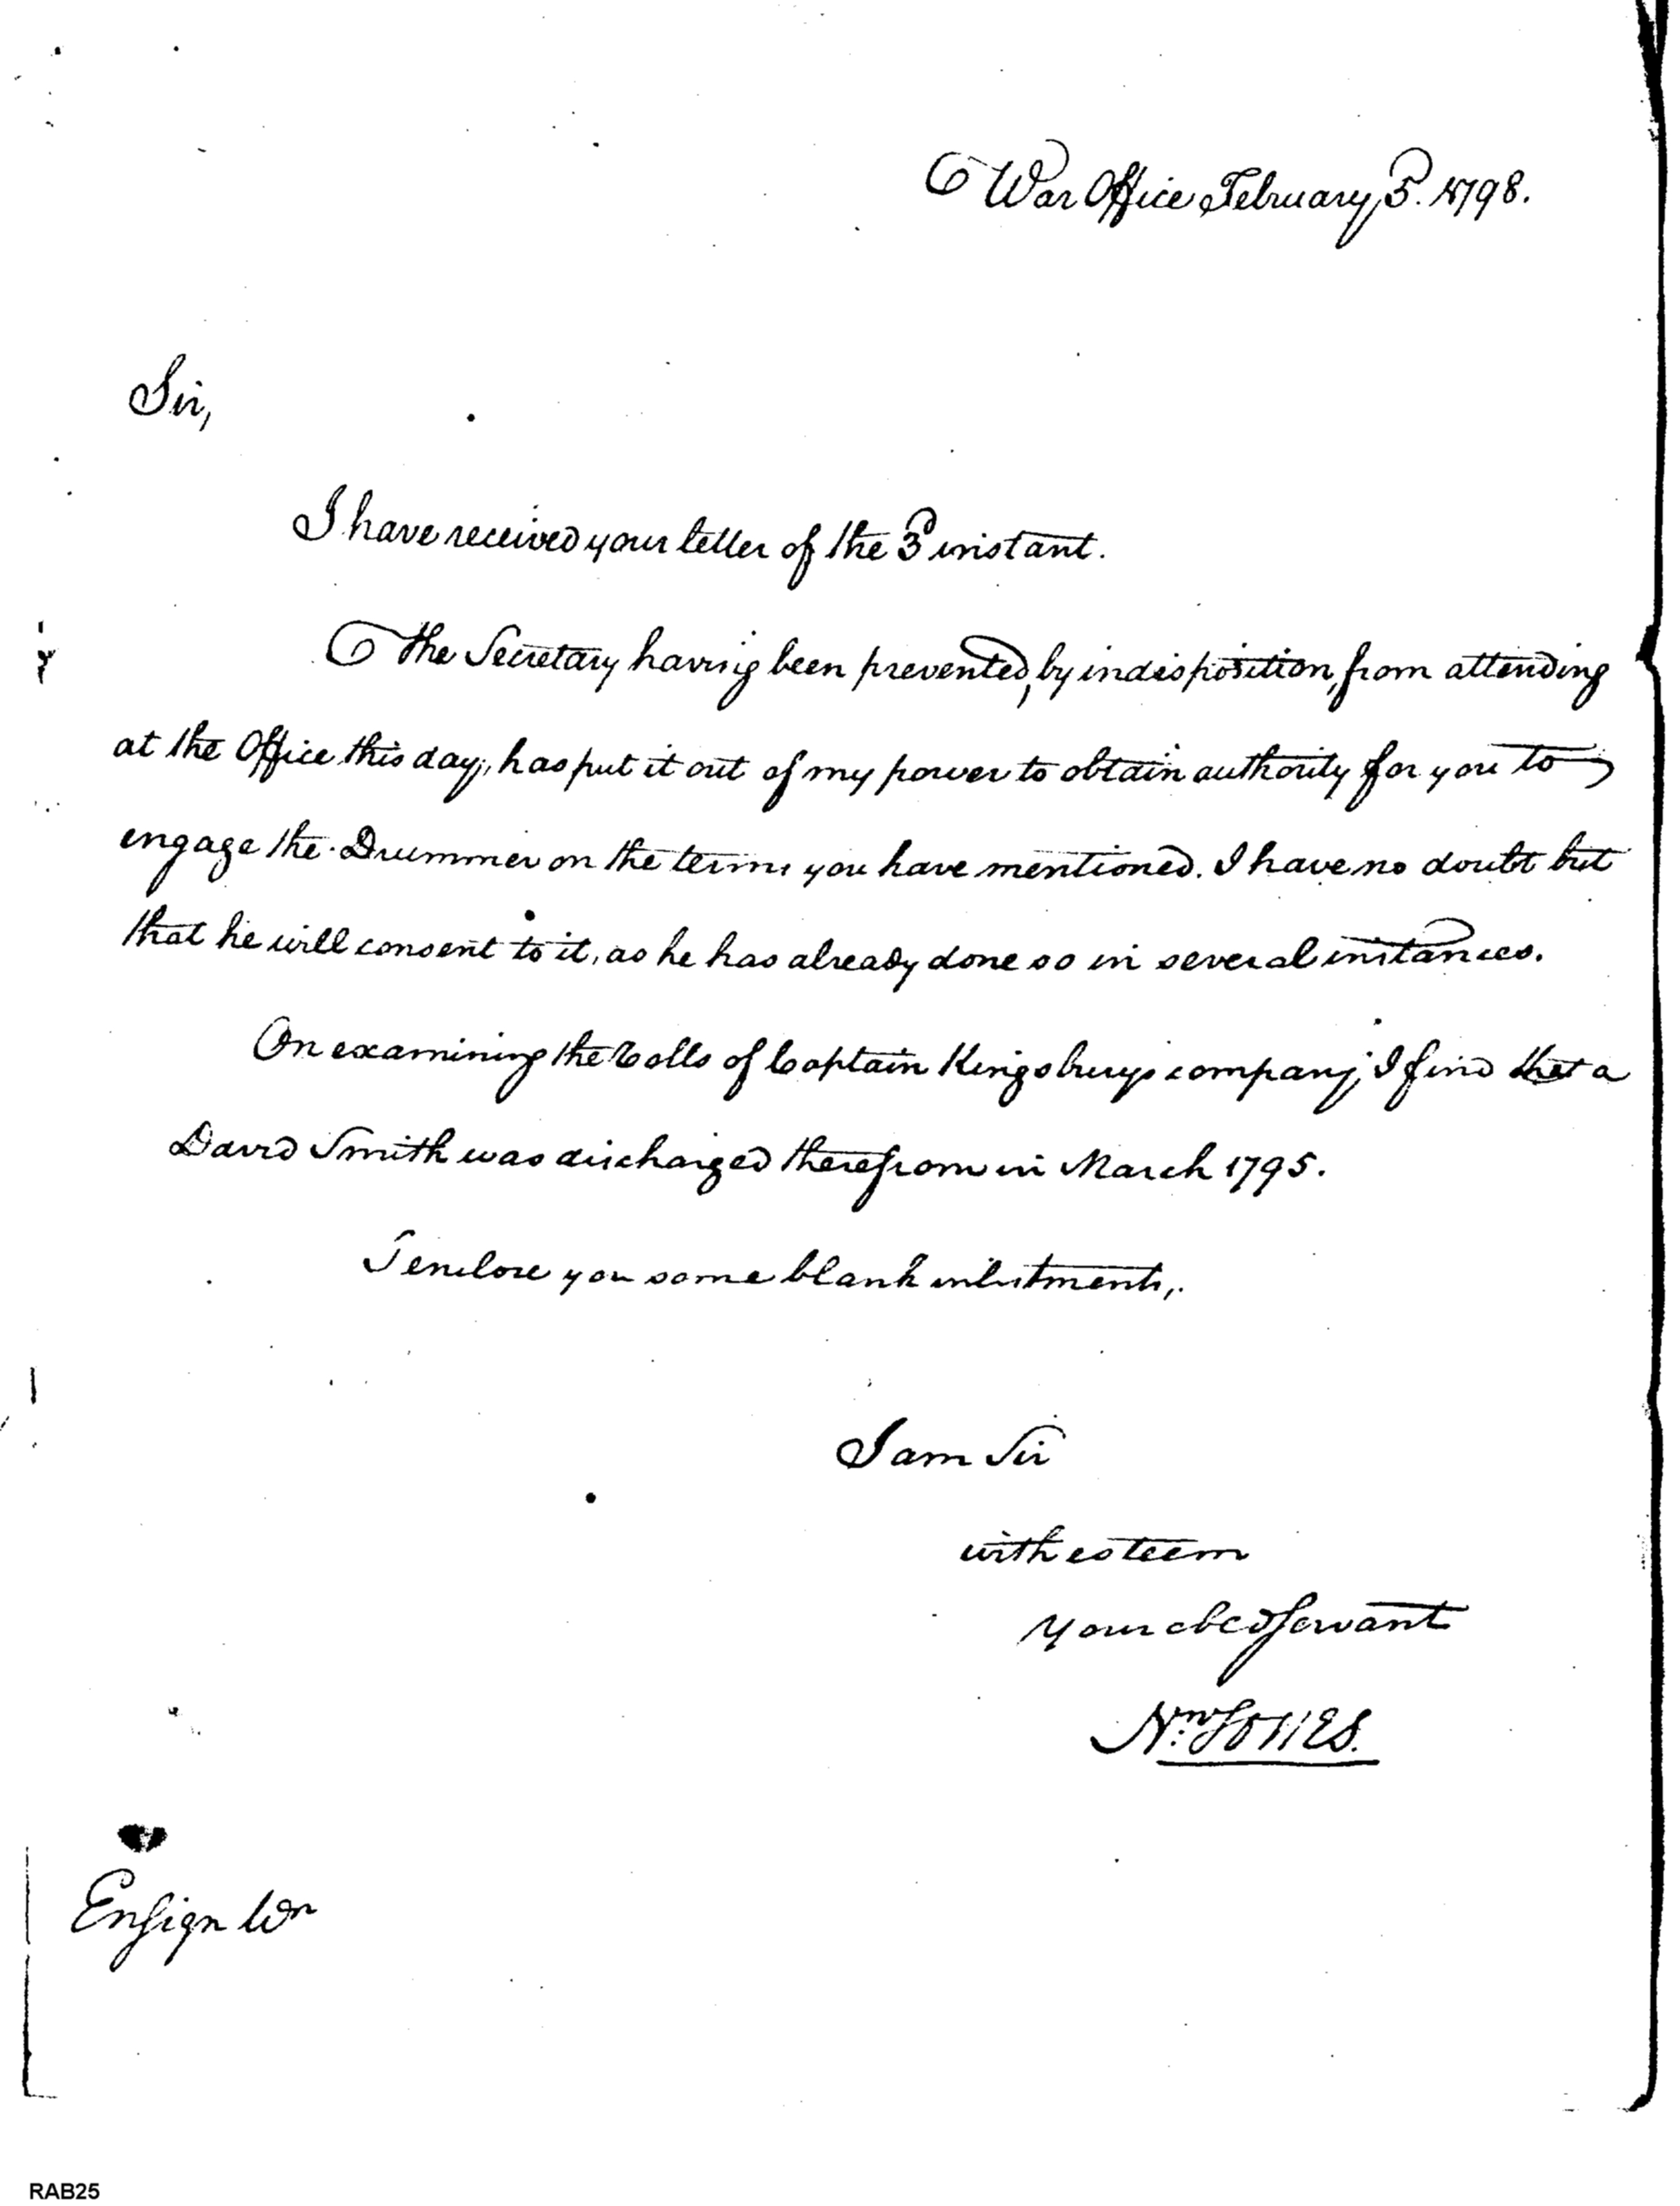 War Office February 5. 1798.
Sir,
I have received your letter of the 3d instant.
The Secretary having been prevented, by indisposition, from attending
at the Office this day, has put it out of my power to obtain authority for you to
engage the Drummer on the terms you have mentioned. I have no doubt but
that he will consent to it, as he has already done so in several instances.
On examining the Rolls of Captain Kingsburys company, I find that a
David Smith was discharged therefrom in March 1795.
I enclose you some blank inlistments,.
I am Sir
with esteem
your obed Servant
Nw Jones.
Ensign Wm
RAB25